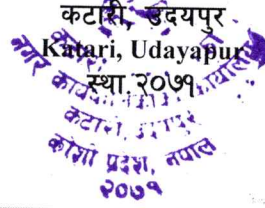 कटारी, उदयपुर
Katari, Udayapur
स्था.२०७१
नगर कार्यपालिकाको कार्यालय
कटारी, उदयपुर
कोशी प्रदेश, नेपाल
२०७१